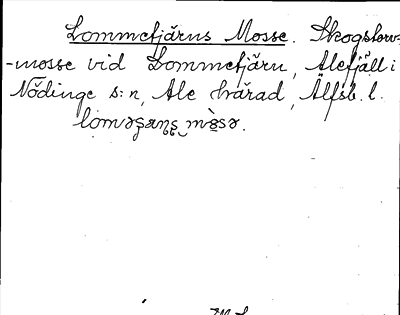 Lommetjärns Mosse. Skogstorv=
-mosse vid Lommetjärn, Alefjäll i
Nödinge s:n, Ale härad, Älfsb. l.